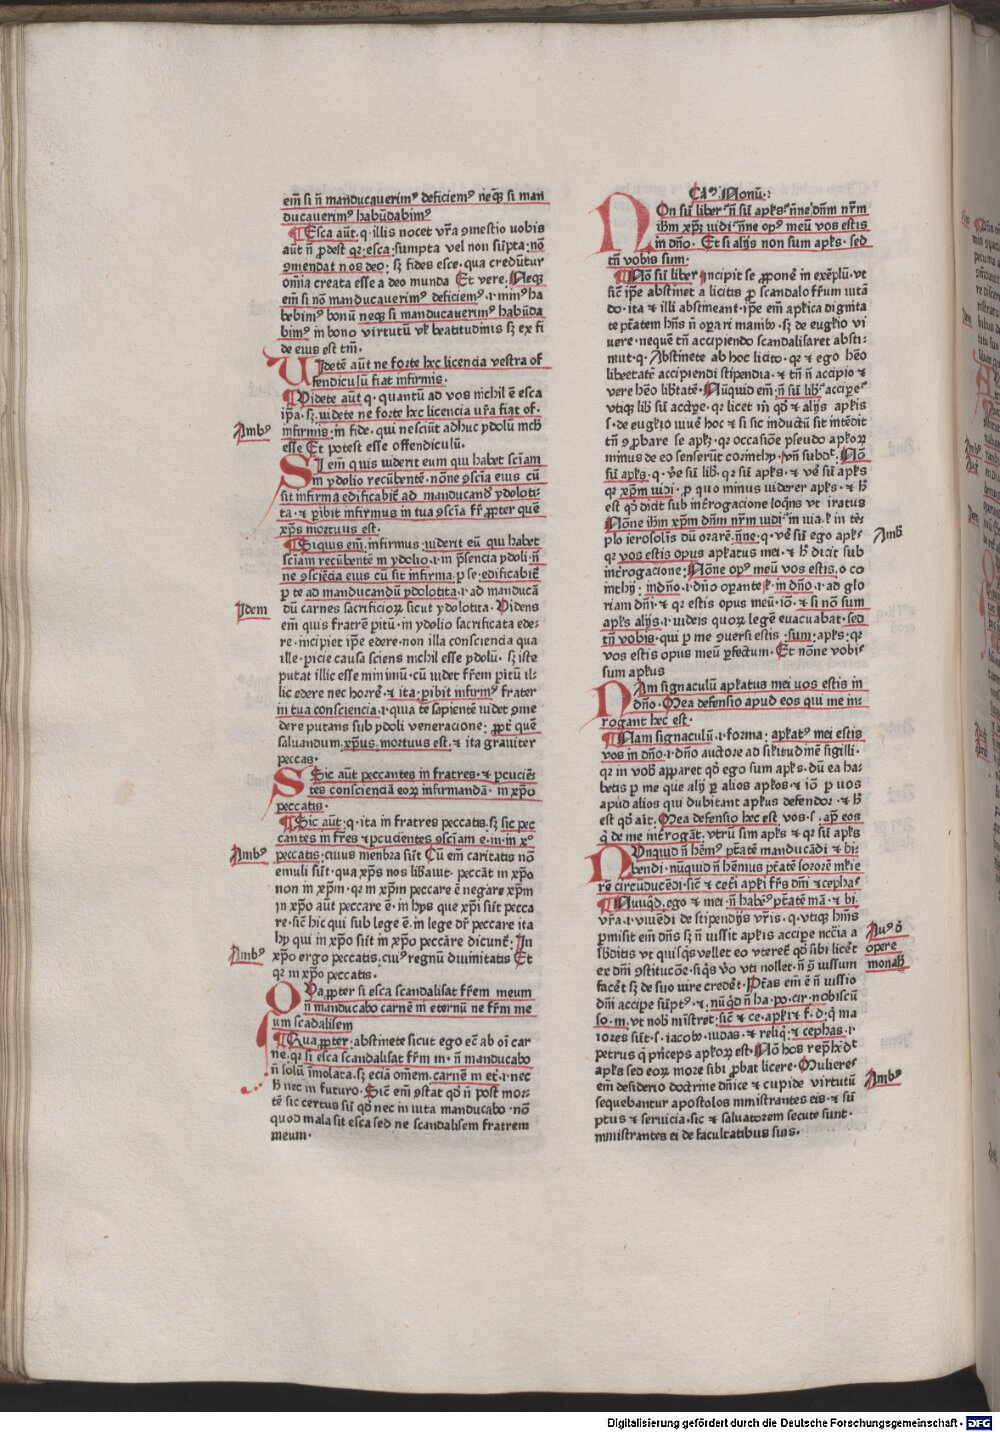 em̄ si n̄ manducauerimꝰ deficiemꝰ neqꝫ si man
ducauerimꝰ habūdabimꝰ
¶Esca aūt· q· illis nocet vr̄a ꝯmestio uobis
aūt n̄ ꝓdest qꝛ esca sumpta vel non sūpta· nō
ꝯmendat nos deo· sꝫ fides esce· qua credūtur
om̄ia creata esse a deo munda Et vere· Neqꝫ
em̄ si nō manducauerimꝰ deficiemꝰ· ı· minꝰ ha
bebimꝰ bonū neqꝫ si manducauerimꝰ habūda
bimꝰ in bono virtutū vl̓ beatitudinis sꝫ ex fi
de eius est tm̄·
VIdetē aūt ne forte hec licencia vestra of
fendiculū fiat infirmis·
¶Videte aūt q· quantū ad vos nichil ē esca
ip̄a· sꝫ uidete ne forte hec licencia ur̄a fiat of·
infirmis· in fide· qui nesciūt adhuc ydolū mchł
esse Et potest esse offendiculū·
SI em̄ quis uiderit eum qui habet scīam
in ydolio recūbentē· nōne ꝯscīa eius cū
sit infirma edificabit̄ ad manducand̄ ydoloti-
ta· ⁊ ꝑibit infirmus in tua ꝯscīa fr̄ ꝓpter quē
xp̄s mortuus est·
¶Siquis em̄· infirmus· uiderit eū qui habet
sciam recūbentē in ydolio· ı· in p̄sencia ydoli· n̄
ne ꝯsciēcia eius cū sit infirma· ꝑ se· edificabit̄
ꝑ te ad manducandū ydolotita· ı· ad manducā
dū carnes sacrificioꝝ sicut ydolotita· Videns
em̄ quis fratrē ꝑitū· in ydolio sacrificata ede-
re· incipiet ip̄e edere· non illa consciencia qua
ille· ꝑicie causa sciens nichil esse ydolū· sꝫ iste
putat illic esse mīnimū· cū uidet fr̄em ꝑitū il-
lic edere nec horrē· ⁊ ita ꝑibit infirmꝰ frater
in tua consciencia· ı· qua te sapientē uidet ꝯme
dere putans sub ydoli veneracione· ꝓpt̄ quē
saluandum· xp̄us· mortuus est· ⁊ ita grauiter
peccas·
SIc aūt peccantes in fratres· ⁊ ꝑcuciē-
tes conscienciā eoꝝ infirmandā· in xp̄o
peccatis·
¶Sic aūt· q· ita in fratres peccatis· sꝫ sic pec
cantes in fr̄es ⁊ ꝑcucientes ꝯsciam e· in· in xͦ
peccatis· cuius menbra sūt Cū em̄ caritatis nō
emuli sūt· qua xp̄s nos libauit· peccāt in xp̄o
non in xp̄m· qꝛ in xp̄m peccare ē negare xp̄m
in xp̄o aūt peccare ē· in hys que xp̄i sūt pecca
re· sic̄ hic qui sub lege ē· in lege dr̄ peccare ita
hy qui in xp̄o sūt in xp̄o peccāre dicunt̄· In
xp̄o ergo peccatis· cuiꝰ regnū diuinitatis Et
qꝛ in xp̄o peccatis·
QVaꝓpter si esca scandalisat fr̄em meum
n̄ manducabo carnē in eternū ne fr̄m me
um scādalisem
¶Quaꝓpter· abstinete sicut ego eciā ab oī car
ne· qꝛ si esca scandalisat fr̄m m· n̄ manducabo
n̄ solū īmolata· sꝫ eciā om̄em· carnē in et· ı· nec
hͦ nec in futuro· Sic̄ em̄ ꝯstat qđ n̄ post mor-
tē sic certus sū qđ nec in uita manducabo· nō
quod mala sit esca sed ne scandalisem fratrem
meum·
Ambꝰ
Idem
Ambꝰ
Ambꝰ
Caͫ Nonū·:
NOn sū liber· n̄ sū apl̓s· n̄ne dn̄m nr̄m
ihm xp̄m uidi· n̄ne opꝰ meū vos estis
in dn̄o· Et si alijs non sum apl̓s· sed
tn̄ vobis sum·
¶Nō sū liber Incipit se ꝓponē in exēplū· vt
sic̄ ip̄e abstinet a licitis ꝓ scandalo fr̄um uitā
do· ita ⁊ illi abstineant· ip̄e em̄ apl̓ica dignita
te ptātem hn̄s n̄ oꝑari manibꝰ· sꝫ de eugl̓io vi
uere· nequē tn̄ accipiendo scandalisaret absti-
mut· q· Abstinete ab hoc licito· qꝛ ⁊ ego hēo
libertatē accipiendi stipendia· ⁊ tn̄ n̄ accipio ⁊
vere hēo lib̄tatē· Nūquid em̄· n̄ sū lib̄· accip̄e·
vtiqꝫ lib̄ sū accip̄e· qꝛ licet m̄ qđ ⁊ alijs apl̓is
s· de eugl̓io uiuē hoc ⁊ si sic inductū sit intēdit
tn̄ ꝯꝓbare se apl̓ꝫ· qꝛ occasiōne pseudo apl̓oꝝ
minus de eo senserūt corinthy· vn̄ subdͭ· Nō
sū apl̓s· q· v̄e sū lib̄· qꝛ sū apl̓s· ⁊ ve̓ sū apl̓s
qꝛ xp̄m uidi· ꝑ quo minus uiderer apl̓s· ⁊ hͦ
est qđ dicit sub int̓rogacione loq̄ns vt iratus
Nōne ihm xp̄m dn̄m nr̄m uidi in uia· l̓ in tē-
plo ierosolis dū orarē· n̄ne· q· ve̓ sū ego apl̓s
qꝛ vos estis opus apl̓atus mei· ⁊ hͦ dicit sub
int̓rogacione· Nōne opꝰ meū vos estis· o co
inthij· in dn̄o· ı· dn̄o oꝑante l̓· in dn̄o· ı· ad glo
riam dn̄i· ⁊ qꝛ estis opus meū· iō· ⁊ si nō sum
apl̓s alijs· ı· uideis quoꝝ legē euacuabat· sed
tn̄ vobis· qui ꝑ me ꝯuersi estis· sum· apl̓s· qꝛ
vos estis opus meū ꝑfectum· Et nōne vobiꝰ
sum apl̓us
NAm signaculū apl̓atus mei uos estis in
dn̄o· Mea defensio apud eos qui me in-
rogant hec est·
¶Nam signaculū· ı· forma· apl̓atꝰ mei estis
vos in dn̄o· ı· dn̄o auctore ad sil̓itudinē sigilli·
qꝛ in vobͥ apparet qđ ego sum apl̓s· dū ea ha-
betis ꝑ me que alij ꝑ alios apl̓os· ⁊ iō ꝑ uos
apud alios qui dubitant apl̓us defendor· ⁊ hͦ
est qđ ait· Mea defensio hec est vos· s· apd̄ eos
q̄ de me int̓rogāt· vtrū sim apl̓s ⁊ qꝛ sū apl̓s
NVnquid n̄ hēmꝰ ptātē manducādi ⁊ bi-
bendi· nūquid n̄ hēmus ptātē sororē ml̓ie
rē circūducēdi· sic̄ ⁊ cet̓i apl̓i fr̄s dn̄i ⁊ cephaꝰ
¶Nūqd̓· ego ⁊ mei· n̄ habeꝰ ptātē mā· ⁊ bi·
vr̄a· ı· viuēdi de stipendijs vr̄is· q· vtiqꝫ hm̄s
ꝑmisit em̄ dn̄s sꝫ n̄ iussit apl̓is accipe nccīa a
sb̄ditis vt quisq̄s vellet eo vteret̄ qđ sibi licet
ex dn̄i ꝯstitucōne· siq̄s v̓o vti nollet· n̄ g̊ iussum
facet̄ sꝫ de suo iure credet̄· Ptās em̄ ē n̄ iussio
dn̄i accipe sūptꝰ· ⁊· nūqd̄ n̄ ha· po· cir· nobiscū
so· m· vt nob̄ mīstret· sic̄ ⁊ ce· apl̓i ⁊ f· d· q̄ ma
iores sūt· s· iacobꝰ iudas· ⁊ reliq̄· ⁊ cephas· ı·
petrus q̄ p̄nceps apl̓oꝝ est· Nō hos rep̄hēdt̄
apl̓s sed eoꝝ more sibi ꝓbat licere· Mulieres
em̄ desiderio doctrine dn̄ice ⁊ cupide virtutū
sequebantur apostolos ministrantes eis· ⁊ sū
ptus ⁊ seruicia· sic ⁊ saluatorem secute sunt·
ministrantes ei de facultatibus suis·
Ambͬ
Auꝰ ď
opere
monacħ
Ambꝰ
Digitalisierung gefördert durch die Deutsche Forschungsgemeinschaft - DFG